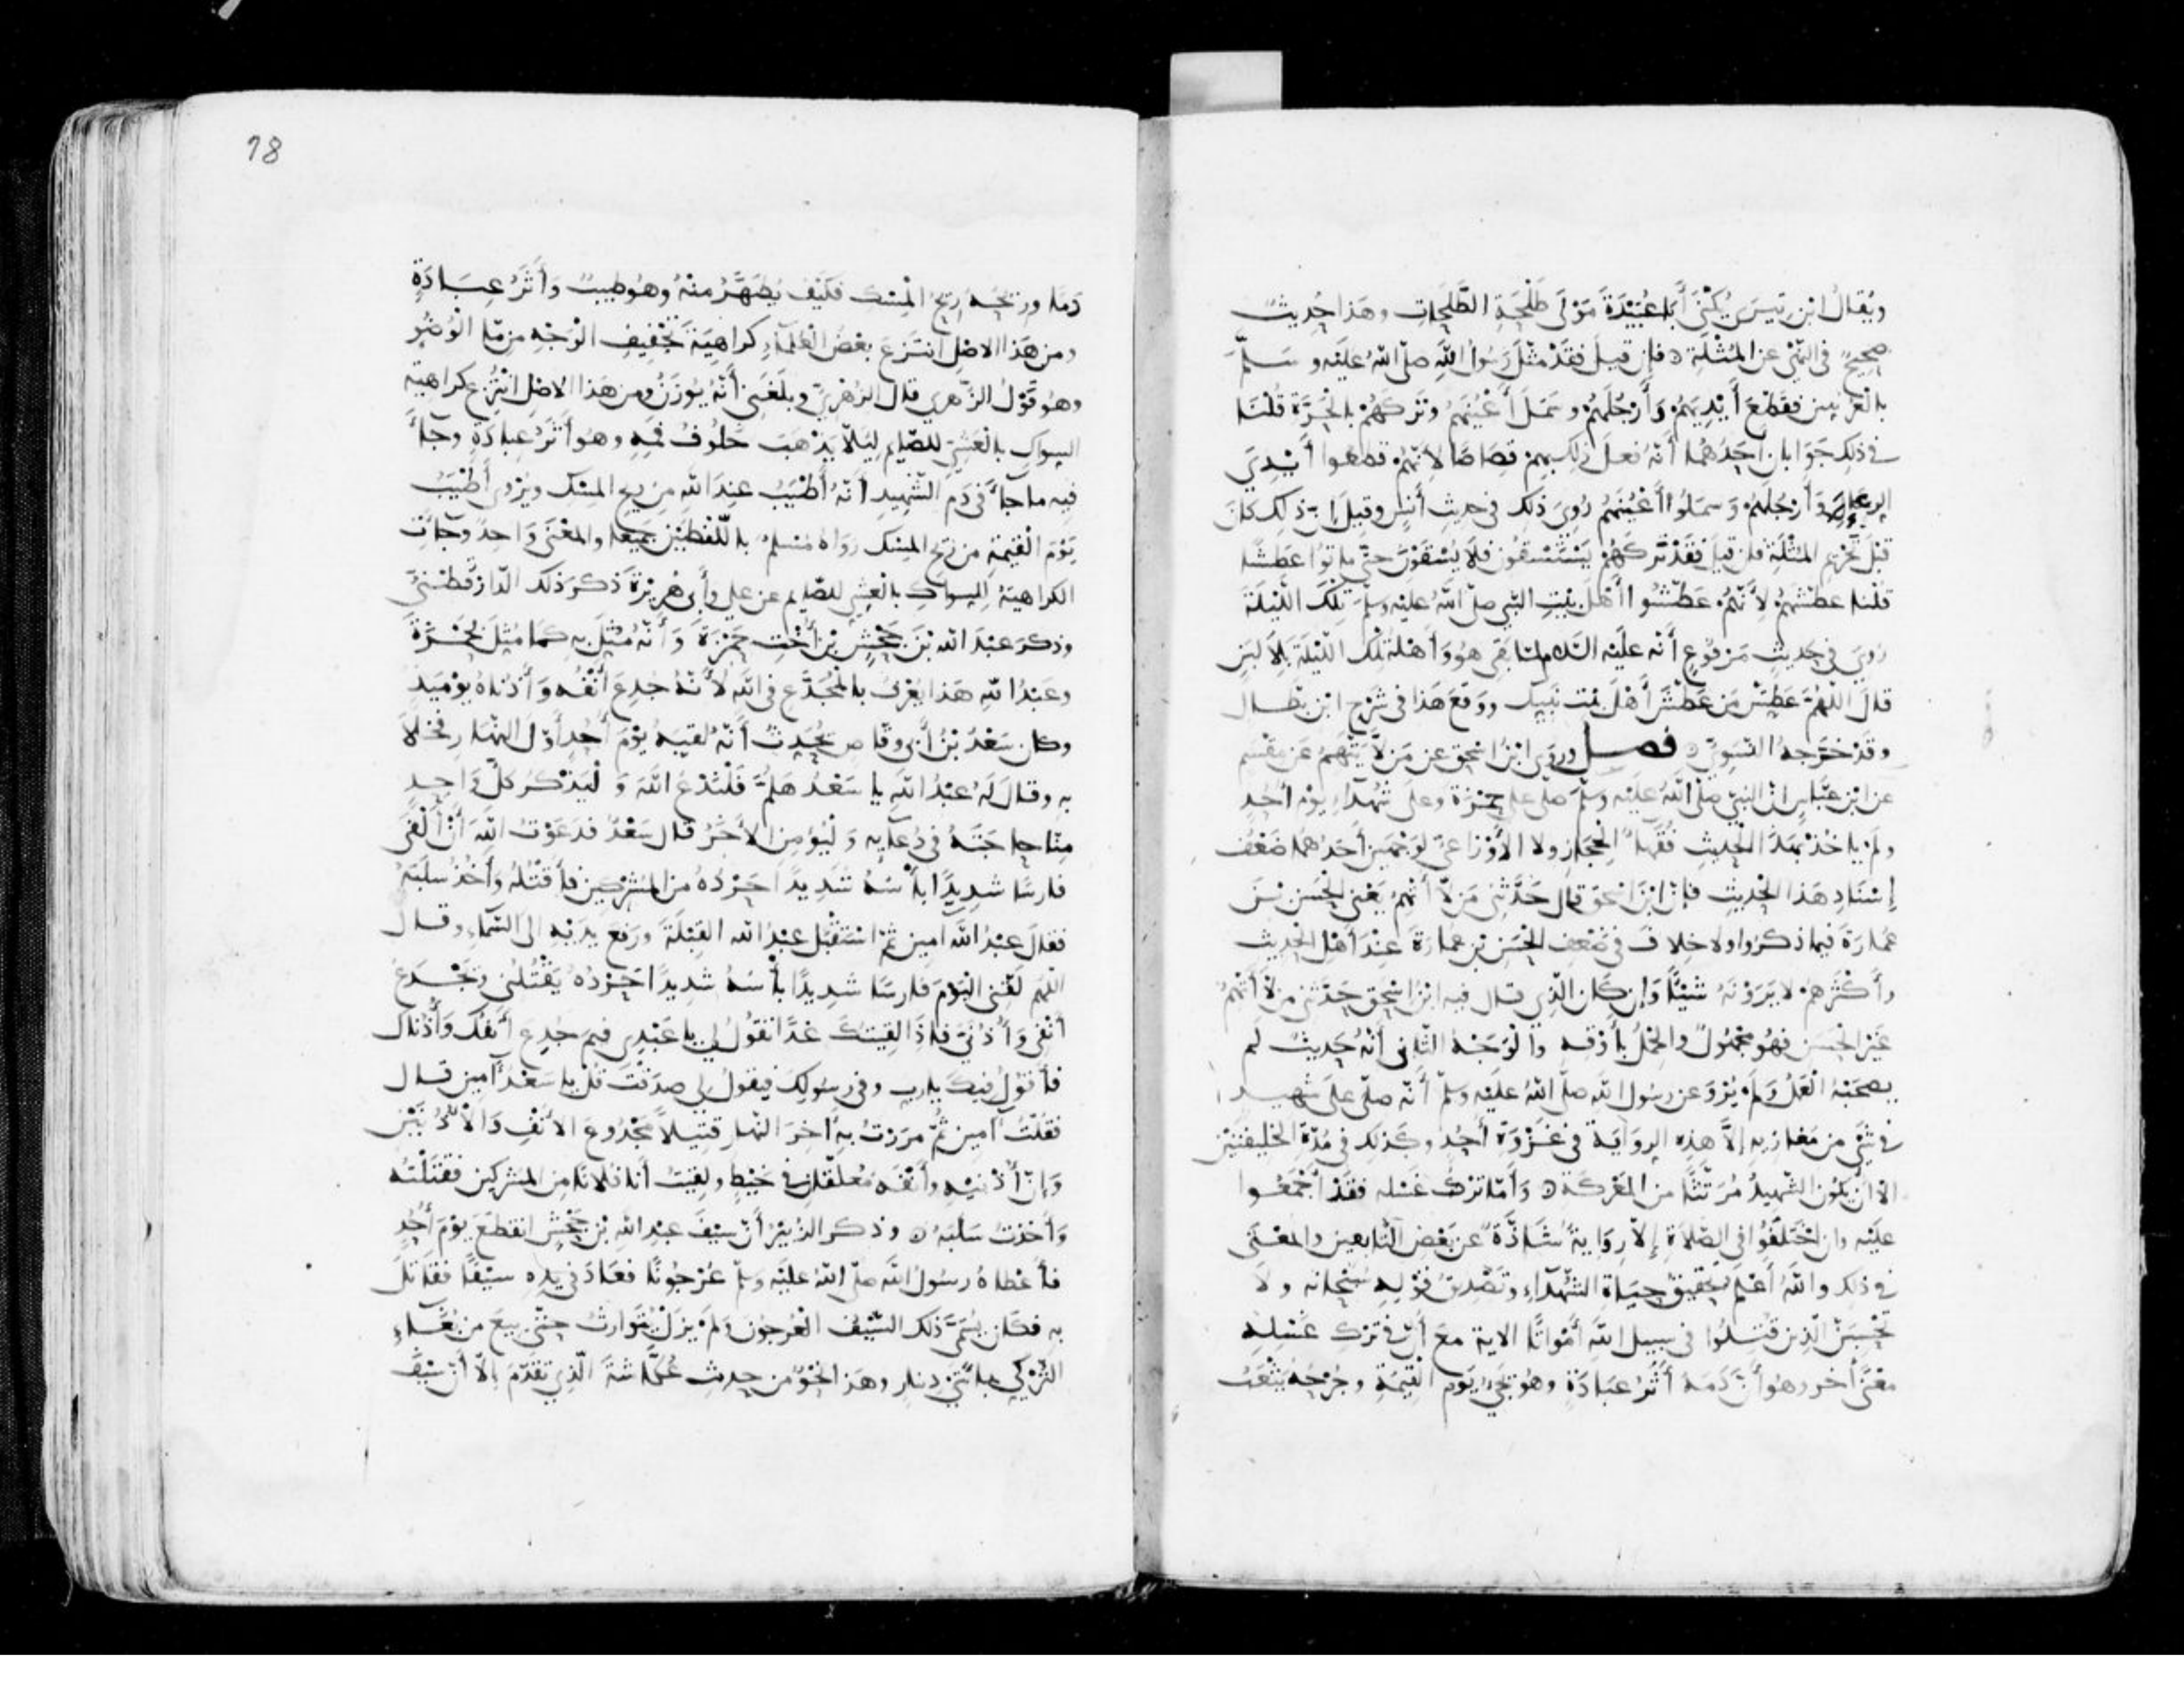 ويقال ابن تيسري يكنى أبا عبيدة مولى طلحة الطلحات وهذا حديث
صحيح في النهي عن المثلة فإن قيل فقد مثل رسول الله صلى الله عليه وسلم
بالعرنيين فقطع أيديهم وأرجلهم وسمل أعينهم وتركهم بالحرة قلنا
في ذلك جوابان احدهما أنه فعل ذلك بهم قصاصا لانهم قطعوا أيدي
الرعاء وأرجلهم وسملوا أعينهم روي ذلك في حديث أنس وقيل إن ذلك كان
قبل تحريم المثلة فإن قيل فقد تركهم يستسقون فلا يسقون حتى ماتوا عطشا
قلنا عطشهم لأنهم عطشوا أهل بيت النبي صلى الله عليه وسلم تلك الليلة
روي في حديث مرفوع أنه عليه السلام لما بقي هو وأهله تلك الليلة بلا لبن
قال اللهم عطش من عطش أهل بيت نبيك ووقع هذا في شرح ابن بطال
وقد خرجه النسوي فصل وروى ابن اسحق عن من لا يتهم عن مقسم
عن ابن عباس ان النبي صلى الله عليه وسلم صلى على حمزة وعلى شهداء يوم احد
ولم ياخذ بهذا الحديث فقهاء الحجاز ولا الأوزاعي لوجهين أحدهما ضعف
إسناد هذا الحديث فإن ابن اسحق قال حدثني من لا أتهم يعني الحسن بن
عمارة فيما ذكروا ولا خلاف في ضعف الحسن بن عمارة عند أهل الحديث
وأكثرهم لا يرونه شيئا وإن كان الذي قال فيه ابن اسحق حدثني من لا أتهم
غير الحسن فهو مجهول والجهل يأوبقه والوجه الثاني أنه حديث لم
يصحبه العمل ولم يرو عن رسول الله صلى الله عليه وسلم أنه صلى على شهيد
في شيء من مغازيه إلا هذه الرواية في غزوة أحد وكذلك في مدة الخليفتين
الا أن يكون الشهيد مرتثا من المعركة وأما ترك غسله فقد أجمعوا
عليه وان اختلفوا في الصلاة إلا رواية شاذة عن بعض التابعين والمعنى
في ذلك والله أعلم تحقيق حياة الشهداء وتصديق قوله سبحانه ولا
تحسبن الذين قتلوا في سبيل الله أمواتا الاية مع أن في ترك غسله
معنى أخر وهو أن دمه أثر عبادة وهو يجيء يوم القيمة وجرحه يثعب
78
دما وريحه ريح المسك فكيف يطهر منه وهو طيب وأثر عبادة
ومن هذا الاصل انتزع بعض العلماء كراهية تجفيف الوجه من ماء الوضوء
وهو قول الزهري قال الزهري وبلغني أنه يوزن ومن هذا الاصل انتزع كراهية
السواك بالعشي للصايم ليلا يذهب خلوف فمه وهو أثر عبادة وجاء
فيه ما جاء في دم الشهيد أنه أطيب عند الله من ريح المسك ويروى أطيب
يوم القيمة من ريح المسك رواه مسلم باللفظين جميعا والمعنى واحد وجاءت
الكراهية للسواك بالعشي للصايم عن علي وأبي هريرة ذكر ذلك الدارقطني
وذكر عبد الله بن جحش بن أخت حمزة وأنه مثل به كما مثل بحمزة
وعبد الله هذا يعرف بالمجدع في الله لأنه جدع أنفه وأذناه يوميذ
وكان سعد بن أبي وقاص يحدث أنه لقيه يوم أحد أول النهار فخلا
به وقال له عبد الله يا سعد هلم فلندع الله وليذكر كل واحد
منا حاجته في دعايه وليؤمن الأخر قال سعد فدعوت الله أن ألقى
فارسا شديدا بأسه شديدا حرده من المشركين فأقتله وأخذ سلبه
فقال عبد الله آمين ثم استقبل عبد الله القبلة ورفع يديه الى السماء وقال
اللهم لقني اليوم فارسا شديدا بأسه شديدا حرده يقتلني ويجدع
أنفي وأذني فاذا لقيتك غدا تقول لي يا عبدي فيم جدع أنفك وأذناك
فأقول فيك يا رب وفي رسولك فيقول لي صدقت قل يا سعد آمين قال
فقلت آمين ثم مررت به آخر النهار قتيلا مجدوع الانف والأذنين
وإن أذنيه وأنفه معلقان في خيط ولقيت أنا فلانا من المشركين فقتلته
وأخذت سلبه وذكر الزبير أن سيف عبد الله بن جحش انقطع يوم أحد
فأعطاه رسول الله صلى الله عليه وسلم عرجونا فعاد في يده سيفا فقاتل
به فكان يسمى ذلك السيف العرجون ولم يزل يتوارث حتى بيع من بغاء
التركي بمائتي دينار وهذا نحو من حديث عكاشة الذي تقدم إلا أن سيف